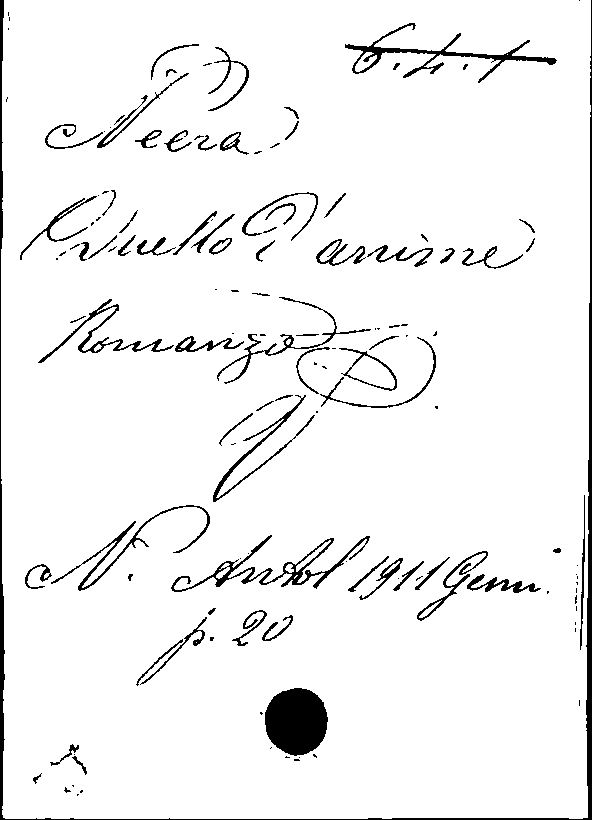 6.4.1
Neera
Duello d'anime
Romanzo
N. Antol 1911 Genn.
p. 20